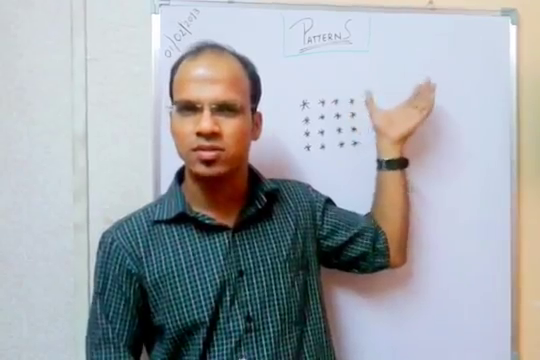 01/02/2013
PATTERNS
* * * *
* * * *
* * * *
* * * *